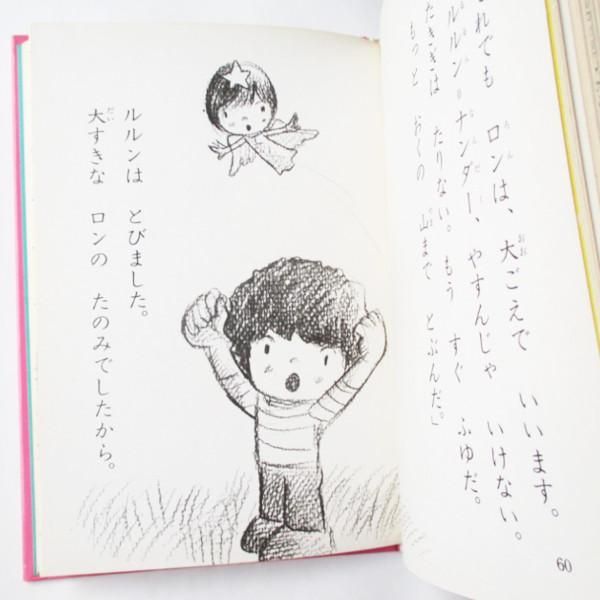 それでも ロンは、大ごえで いいます。
ルルン=ナンダー、やすんじゃ いけない。
たきぎは たりない。もう すぐ ふゆだ。
もっと おくの 山まで とぶんだ。」
60
ルルンは とびました。
大すきな ロンの たのみでしたから。